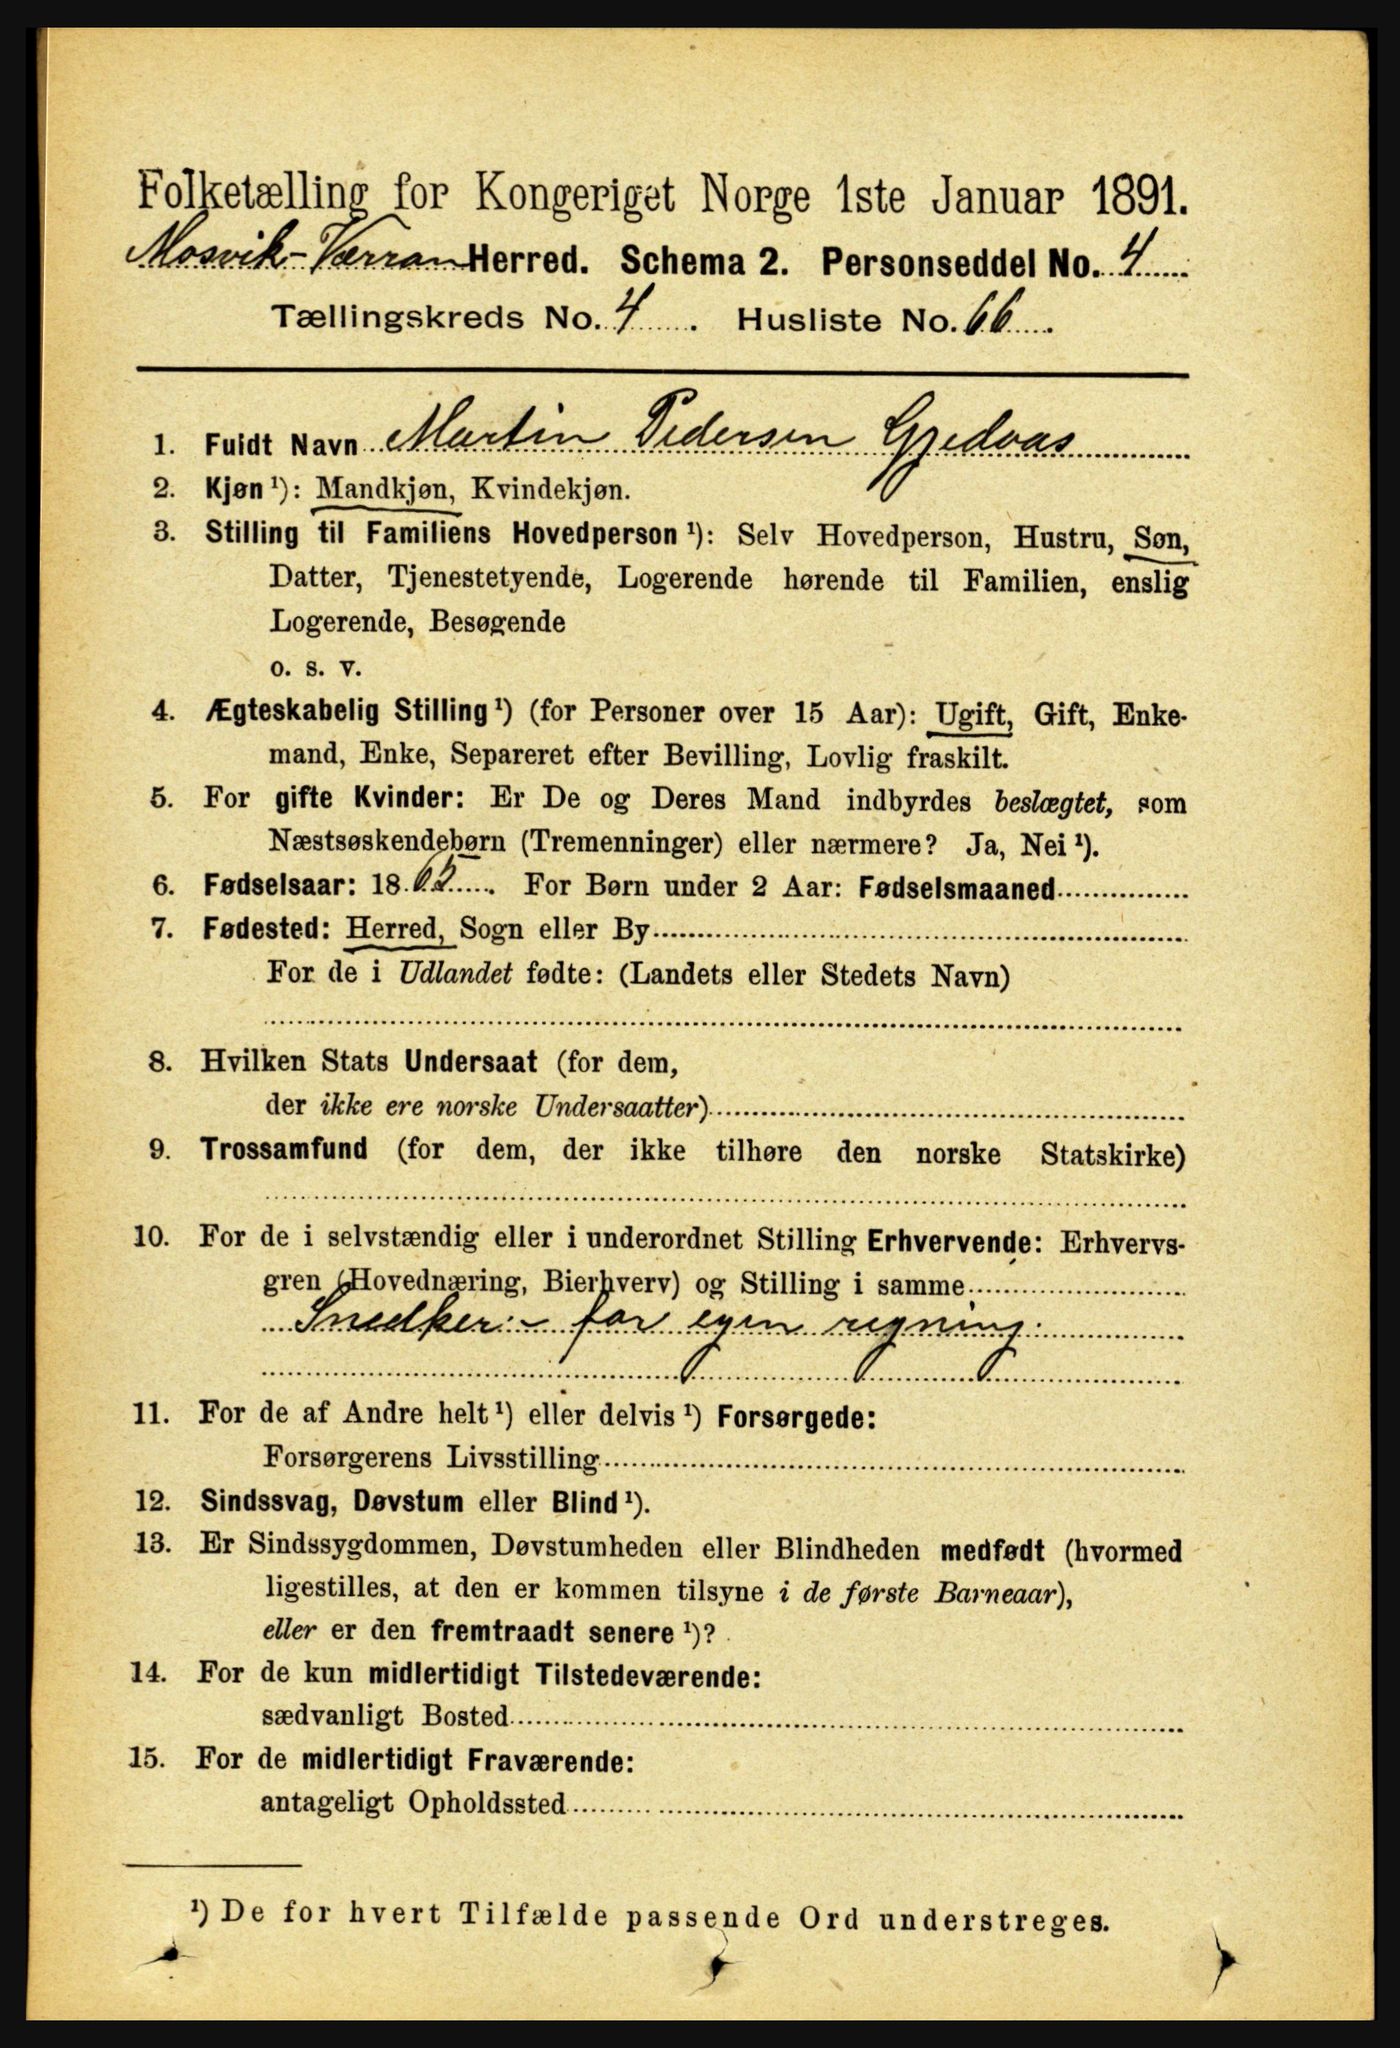 Folketælling for Kongeriget Norge 1ste Januar 1891.
Mosvik-Værran Herred. Schema 2. Personseddel No. 4
Tællingskreds No. 4. Husliste No. 66.
1. Fuldt Navn Martin Pedersen Gjedvas
2. Kjøn ¹): Mandkjøn, Kvindekjøn.
3. Stilling til Familiens Hovedperson ¹): Selv Hovedperson, Hustru, Søn,
Datter, Tjenestetyende, Logerende hørende til Familien, enslig
Logerende, Besøgende
o. s. v.
4. Ægteskabelig Stilling ¹) (for Personer over 15 Aar): Ugift, Gift, Enke-
mand, Enke, Separeret efter Bevilling, Lovlig fraskilt.
5. For gifte Kvinder: Er De og Deres Mand indbyrdes beslægtet, som
Næstsøskendebørn (Tremenninger) eller nærmere? Ja, Nei ¹).
6. Fødselsaar: 18 . For Børn under 2 Aar: Fødselsmaaned
7. Fødested: Herred, Sogn eller By
For de i Udlandet fødte: (Landets eller Stedets Navn)
8. Hvilken Stats Undersaat (for dem,
der ikke ere norske Undersaatter)
9. Trossamfund (for dem, der ikke tilhøre den norske Statskirke)
10. For de i selvstændig eller i underordnet Stilling Erhvervende: Erhvervs-
gren (Hovednæring, Bierhverv) og Stilling i samme
Snedker:- for egen regning.
11. For de af Andre helt ¹) eller delvis ¹) Forsørgede:
Forsørgerens Livsstilling
12. Sindssvag, Døvstum eller Blind ¹).
13. Er Sindssygdommen, Døvstumheden eller Blindheden medfødt (hvormed
ligestilles, at den er kommen tilsyne i de første Barneaar),
eller er den fremtraadt senere ¹)?
14. For de kun midlertidigt Tilstedeværende:
sædvanligt Bosted
15. For de midlertidigt Fraværende:
antageligt Opholdssted
¹) De for hvert Tilfælde passende Ord understreges.